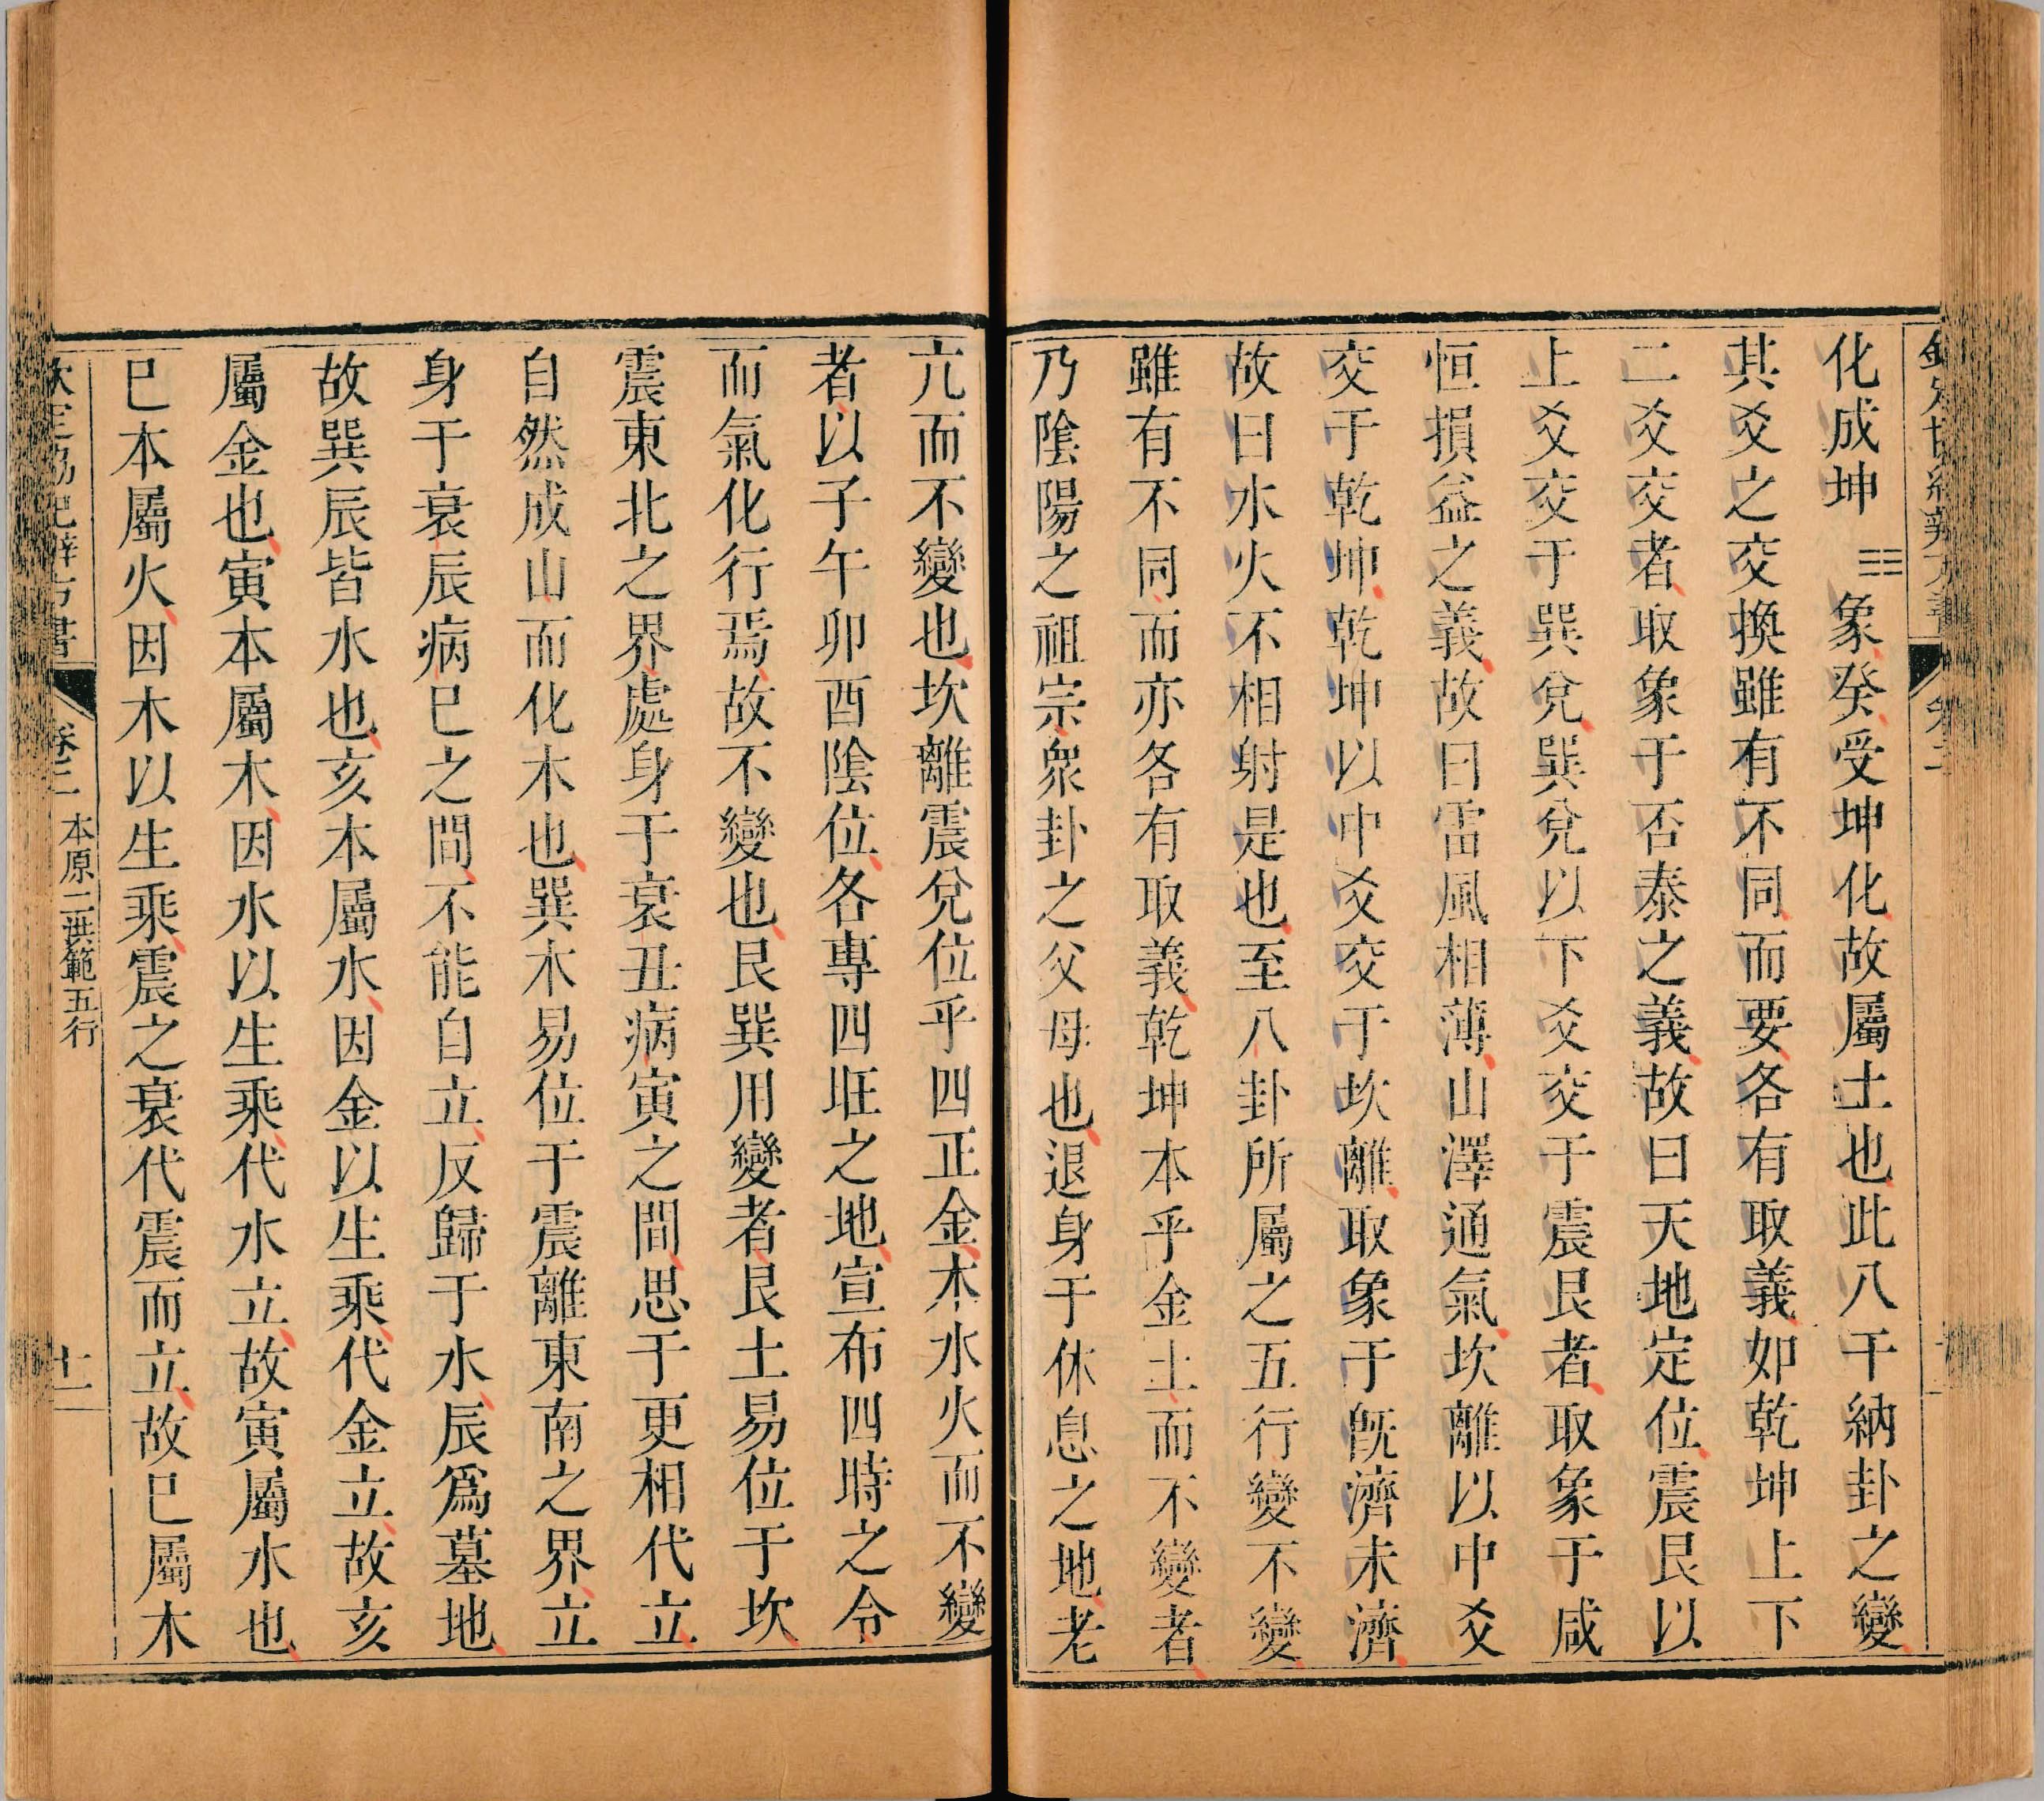 化成坤☷象癸受坤化故屬土也此八干納卦之變
其爻之交換雖有不同而要各有取義如乾坤上下
二爻交者取象于否泰之義故曰天地定位震艮以
上爻交于巽兌巽兌以下爻交于震艮者取象于咸
恒損益之義故曰雷風相薄山澤通氣坎離以中爻
交于乾坤乾坤以中爻交于坎離取象于旣濟未濟
故曰水火不相射是也至八卦所屬之五行變不變
雖有不同而亦各有取義乾坤本乎金土而不變者
乃陰陽之祖宗衆卦之父母也退身于休息之地老
亢而不變也坎離震兌位乎四正金木水火而不變
者以子午卯酉陰位各專四旺之地宣布四時之令
而氣化行焉故不變也艮巽用變者艮土易位于坎
震東北之界處身于衰丑病寅之間思于更相代立
自然成山而化木也巽木易位于震離東南之界立
身于衰辰病巳之間不能自立反歸于水辰爲墓地
故巽辰皆水也亥本屬水因金以生乘代金立故亥
屬金也寅本屬木因水以生乘代水立故寅屬水也
巳本屬火因木以生乘震之衰代震而立故巳屬木
欽定協紀辨方書 卷二 本原二洪範五行 十一